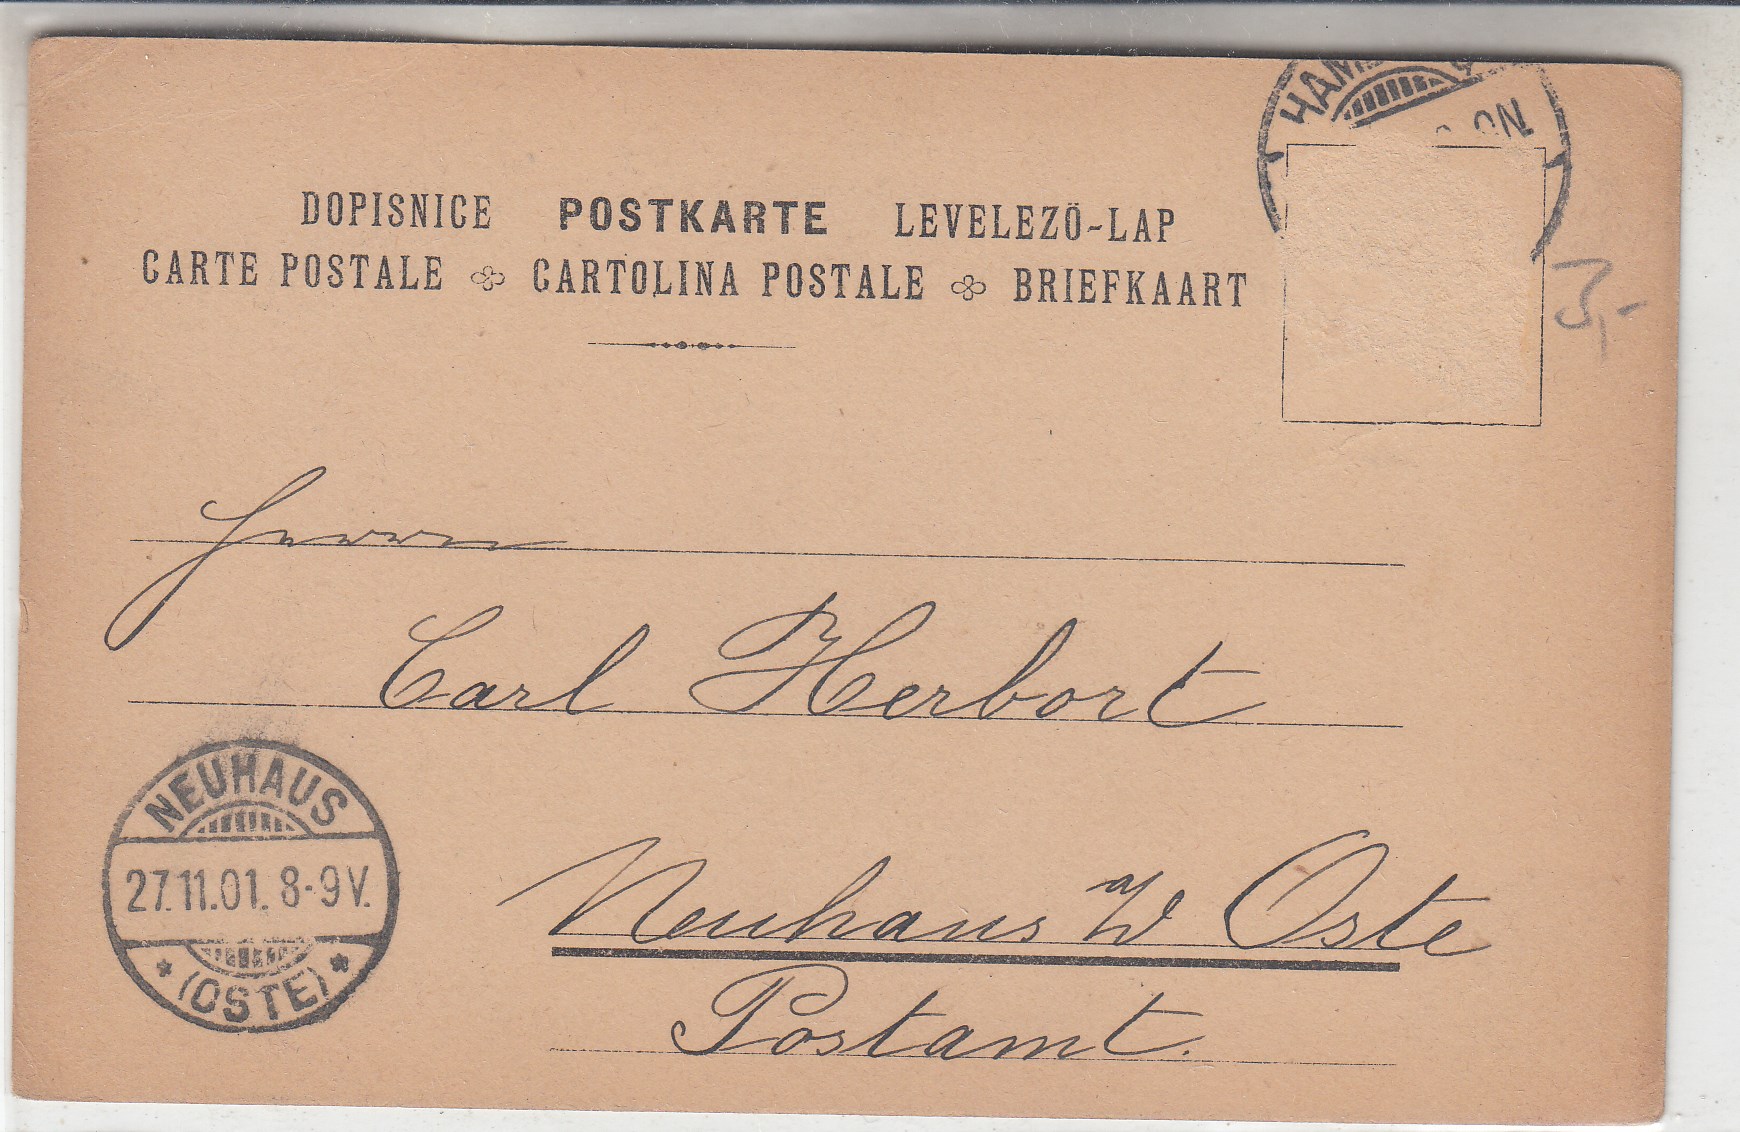 HAM
ON
DOPISNICE POSTKARTE LEVELEZÖ-LAP
CARTE POSTALE CARTOLINA POSTALE BRIEFKAART
3,-
Herrn
Carl Herbort
NEUHAUS
27.11.01. 8-9V.
* (OSTE) *
Neuhaus a/d Oste
Postamt.